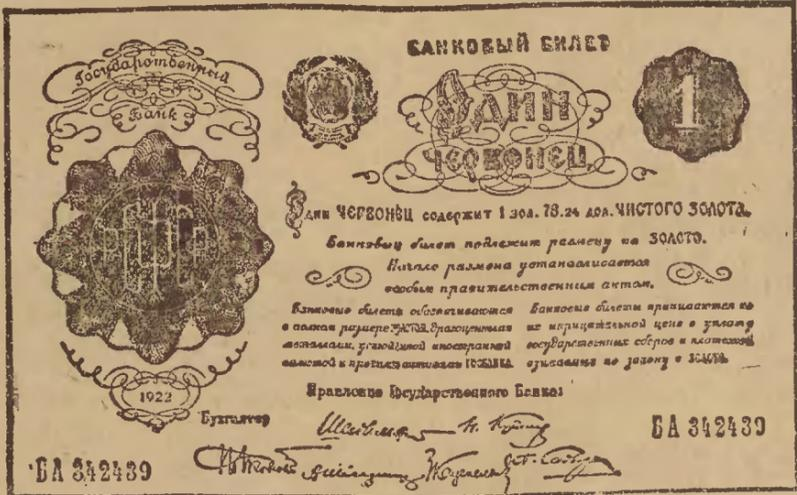 Государственный
Банк
РСФСР
1922
БАНКОВЫЙ БИЛЕТ
ОДИН
ЧЕРВОНЕЦ
1
Один ЧЕРВОНЕЦ содержит 1 зол. 78.24 дол. ЧИСТОГО ЗОЛОТА.
Банковый билет подлежит размену на ЗОЛОТО.
Начало размена устанавливается
особым правительственным актом.
Банковые билеты обеспечиваются
в полном размере золотом, драгоценными
металлами, устойчивой иностранной
валютой и прочими активами ГОСБАНКА.
Банковые билеты принимаются по
их нарицательной цене в уплату
государственных сборов и платежей,
взимаемых по закону в ЗОЛОТЕ.
Правление Государственного Банка:
Бухгалтер
БА 342439
БА 342439